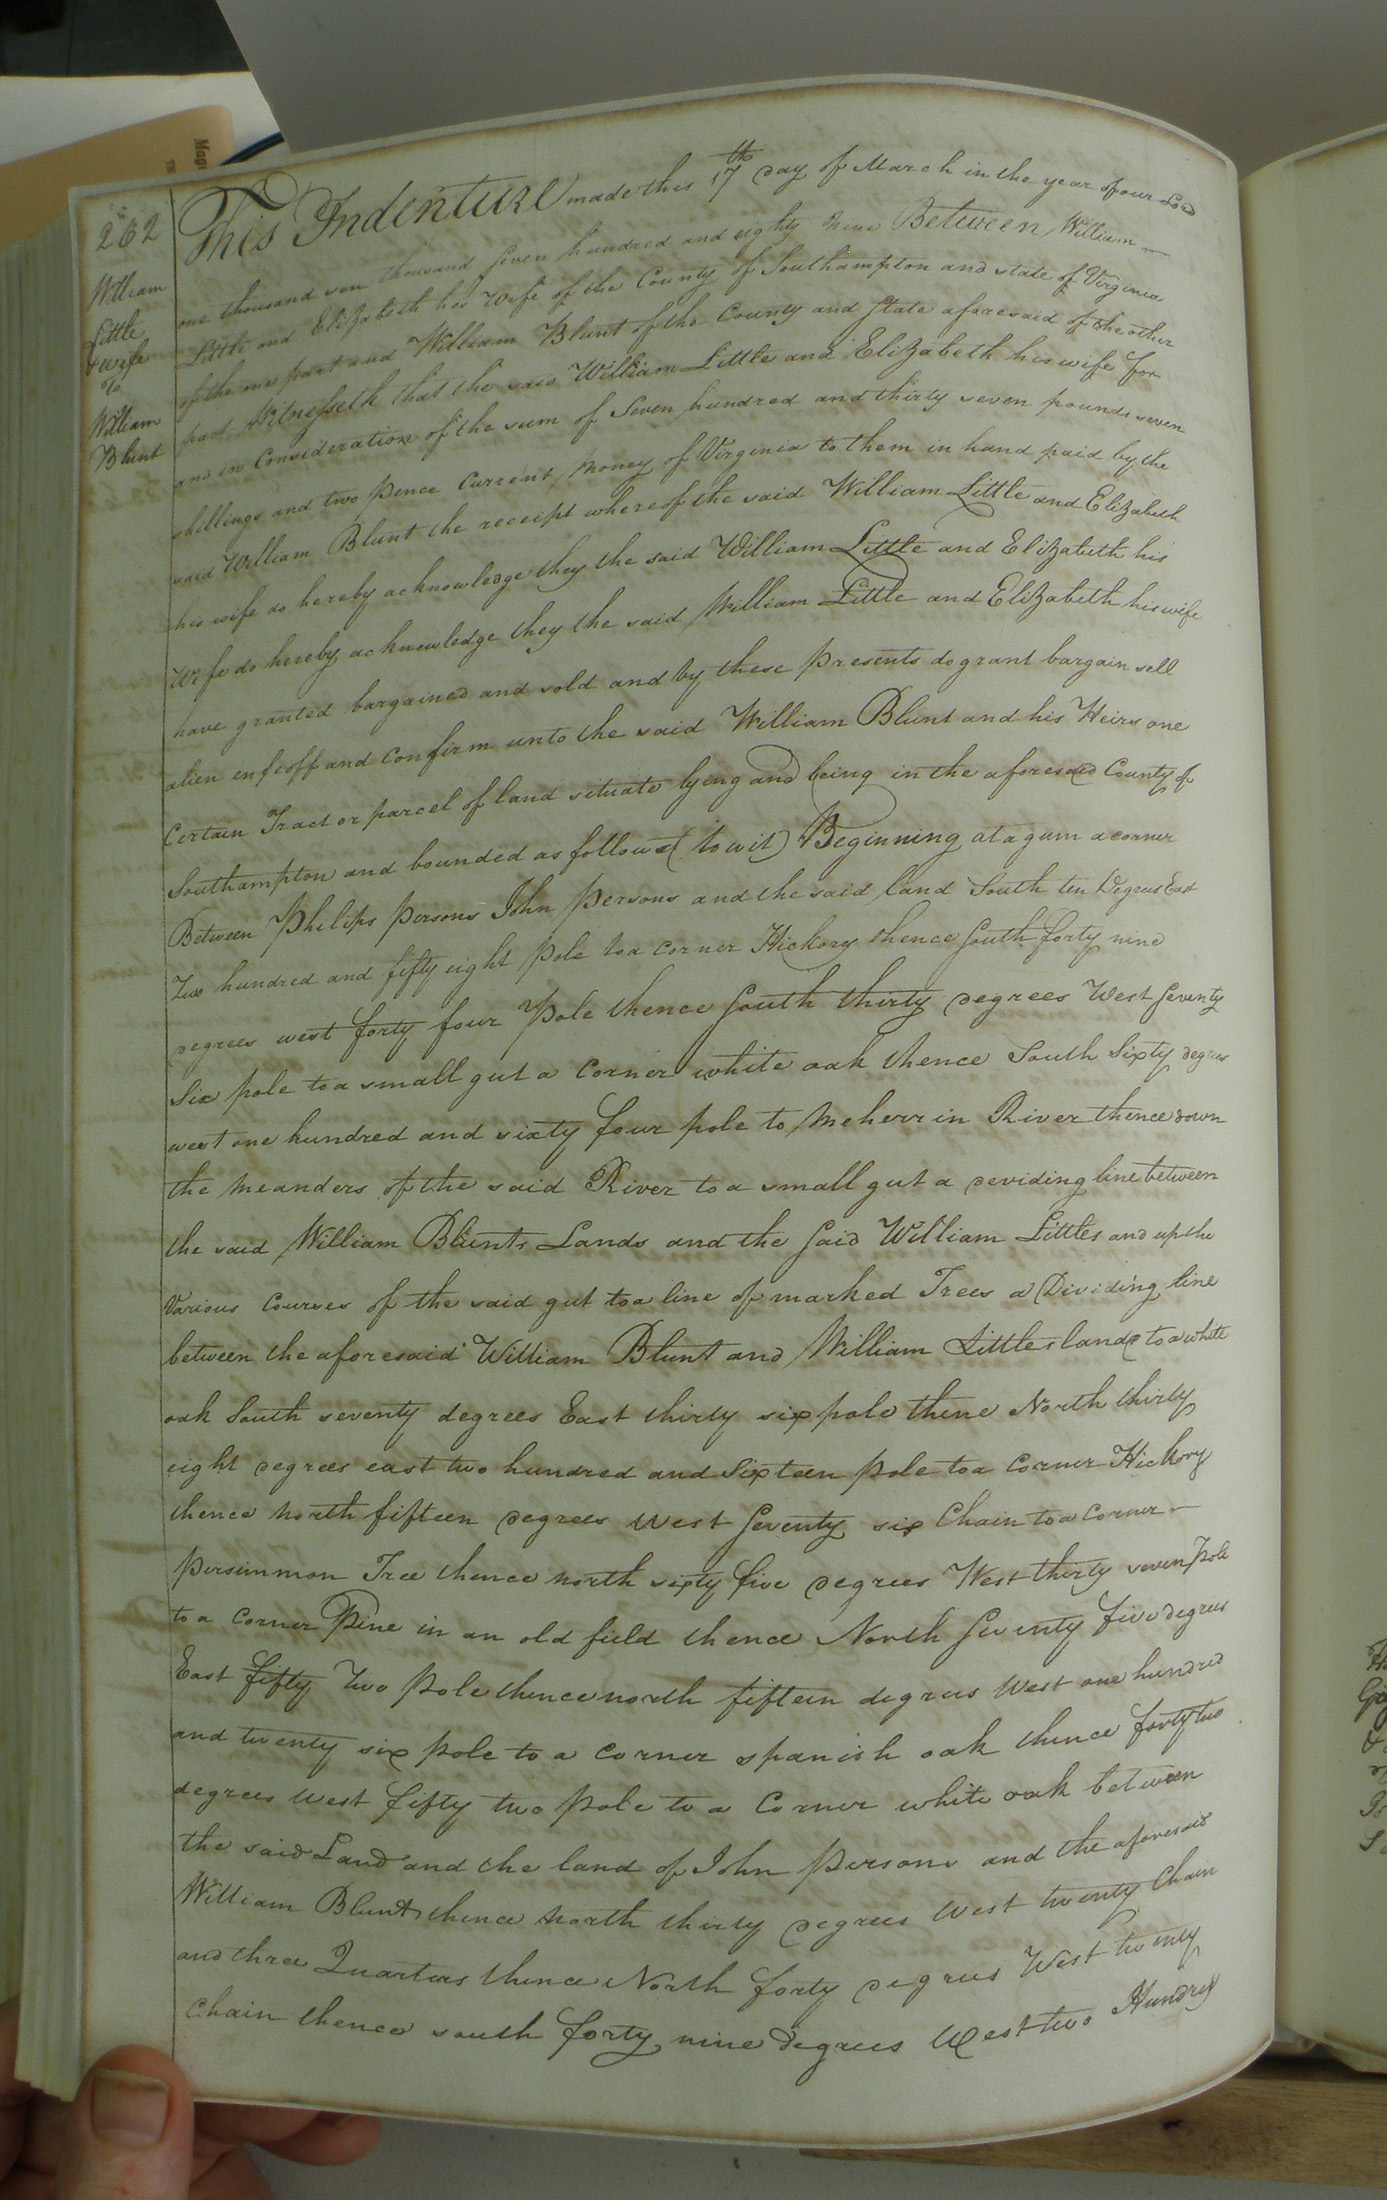 262
William
Little
& wife
To
William
Blunt
This Indenture made this 17th day of March in the year of our Lord
one thousand seven hundred and eighty nine Between William
Little and Elizabeth his Wife of the County of Southampton and state of Virginia
of the one part and William Blunt of the County and State aforesaid of the other
part Witnesseth that the said William Little and Elizabeth his wife for
and in Consideration of the sum of Seven hundred and thirty seven pounds seven
shillings and two pence Current Money of Virginia to them in hand paid by the
said William Blunt the receipt whereof the said William Little and Elizabeth
his wife do hereby acknowledge they the said William Little and Elizabeth his
Wife do hereby acknowledge they the said William Little and Elizabeth his wife
have granted bargained and sold and by these Presents do grant bargain sell
alien enfeoff and Confirm unto the said William Blunt and his Heirs one
Certain Tract or parcel of land situate lying and being in the aforesaid County of
Southampton and bounded as follows (to wit) Beginning at a gum a corner
Between Philips Persons John Persons and the said land South ten Degrees East
Two hundred and fifty eight Pole to a Corner Hickory thence South forty nine
degrees west forty four Pole thence South thirty degrees West Seventy
Six pole to a small gut a Corner white oak thence South Sixty degrees
west one hundred and sixty four pole to Meherrin River thence down
the Meanders of the said River to a small gut a deviding line between
the said William Blunts Lands and the Said William Littles and up the
Various Courses of the said gut to a line of marked Trees a Dividing line
between the aforesaid William Blunt and William Littles lands to a white
oak South seventy degrees East thirty six pole thene North thirty
eight degrees east two hundred and Sixteen Pole to a Corner Hickory
thence North fifteen degrees West Seventy six Chain to a Corner
Persimmon Tree thence North sixty five degrees West thirty seven Pole
to a Corner Pine in an old field thence North Seventy five degrees
East fifty Two Pole thence north fifteen degrees West one hundred
and twenty six pole to a Corner spanish oak thence forty two
degrees West fifty two Pole to a Corner white oak between
the said Land and the land of John Persons and the aforesaid
William Blunt thence North thirty degrees West twenty Chain
and three Quarters thence North forty degrees West twenty
Chain thence south forty nine degrees West two Hundred